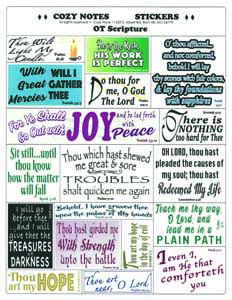 COZY NOTES STICKERS
OT Scripture
Thou Wilt
Light My
Candle
Psalms
18:28
He is the Rock,
HIS WORK
IS PERFECT
O thou afflicted,
and not comforted,
behold, I will lay
thy stones with fair colors,
& lay thy foundations
with sapphires
With
Great
Mercies
WILL I
GATHER
THEE
Isaiah 54:7
Do thou for
me, O God
The Lord
For Ye Shall
Go Out with
JOY
and be led forth
with
Peace
Isaiah 55:12
There is
NOTHING
too hard for Thee
Sit still...until
thou know
how the matter
will fall
Ruth 3:18
Thou which hast shewed
me great & sore
TROUBLES
shalt quicken me again
OH LORD, thou hast
pleaded the causes of
my soul; thou hast
Redeemed My Life
I will go
before thee
...and I will
give thee the
TREASURES
of
DARKNESS
Behold, I have graven thee
upon the palms of My hands
Thou hast girded me
With Strength
unto the battle
Thou art my hope
in the day of evil
Teach me thy way,
O Lord, and
lead me in a
PLAIN PATH
Thou
art my HOPE
Thou art
near,
O Lord
I even I,
am He that
comforteth
you